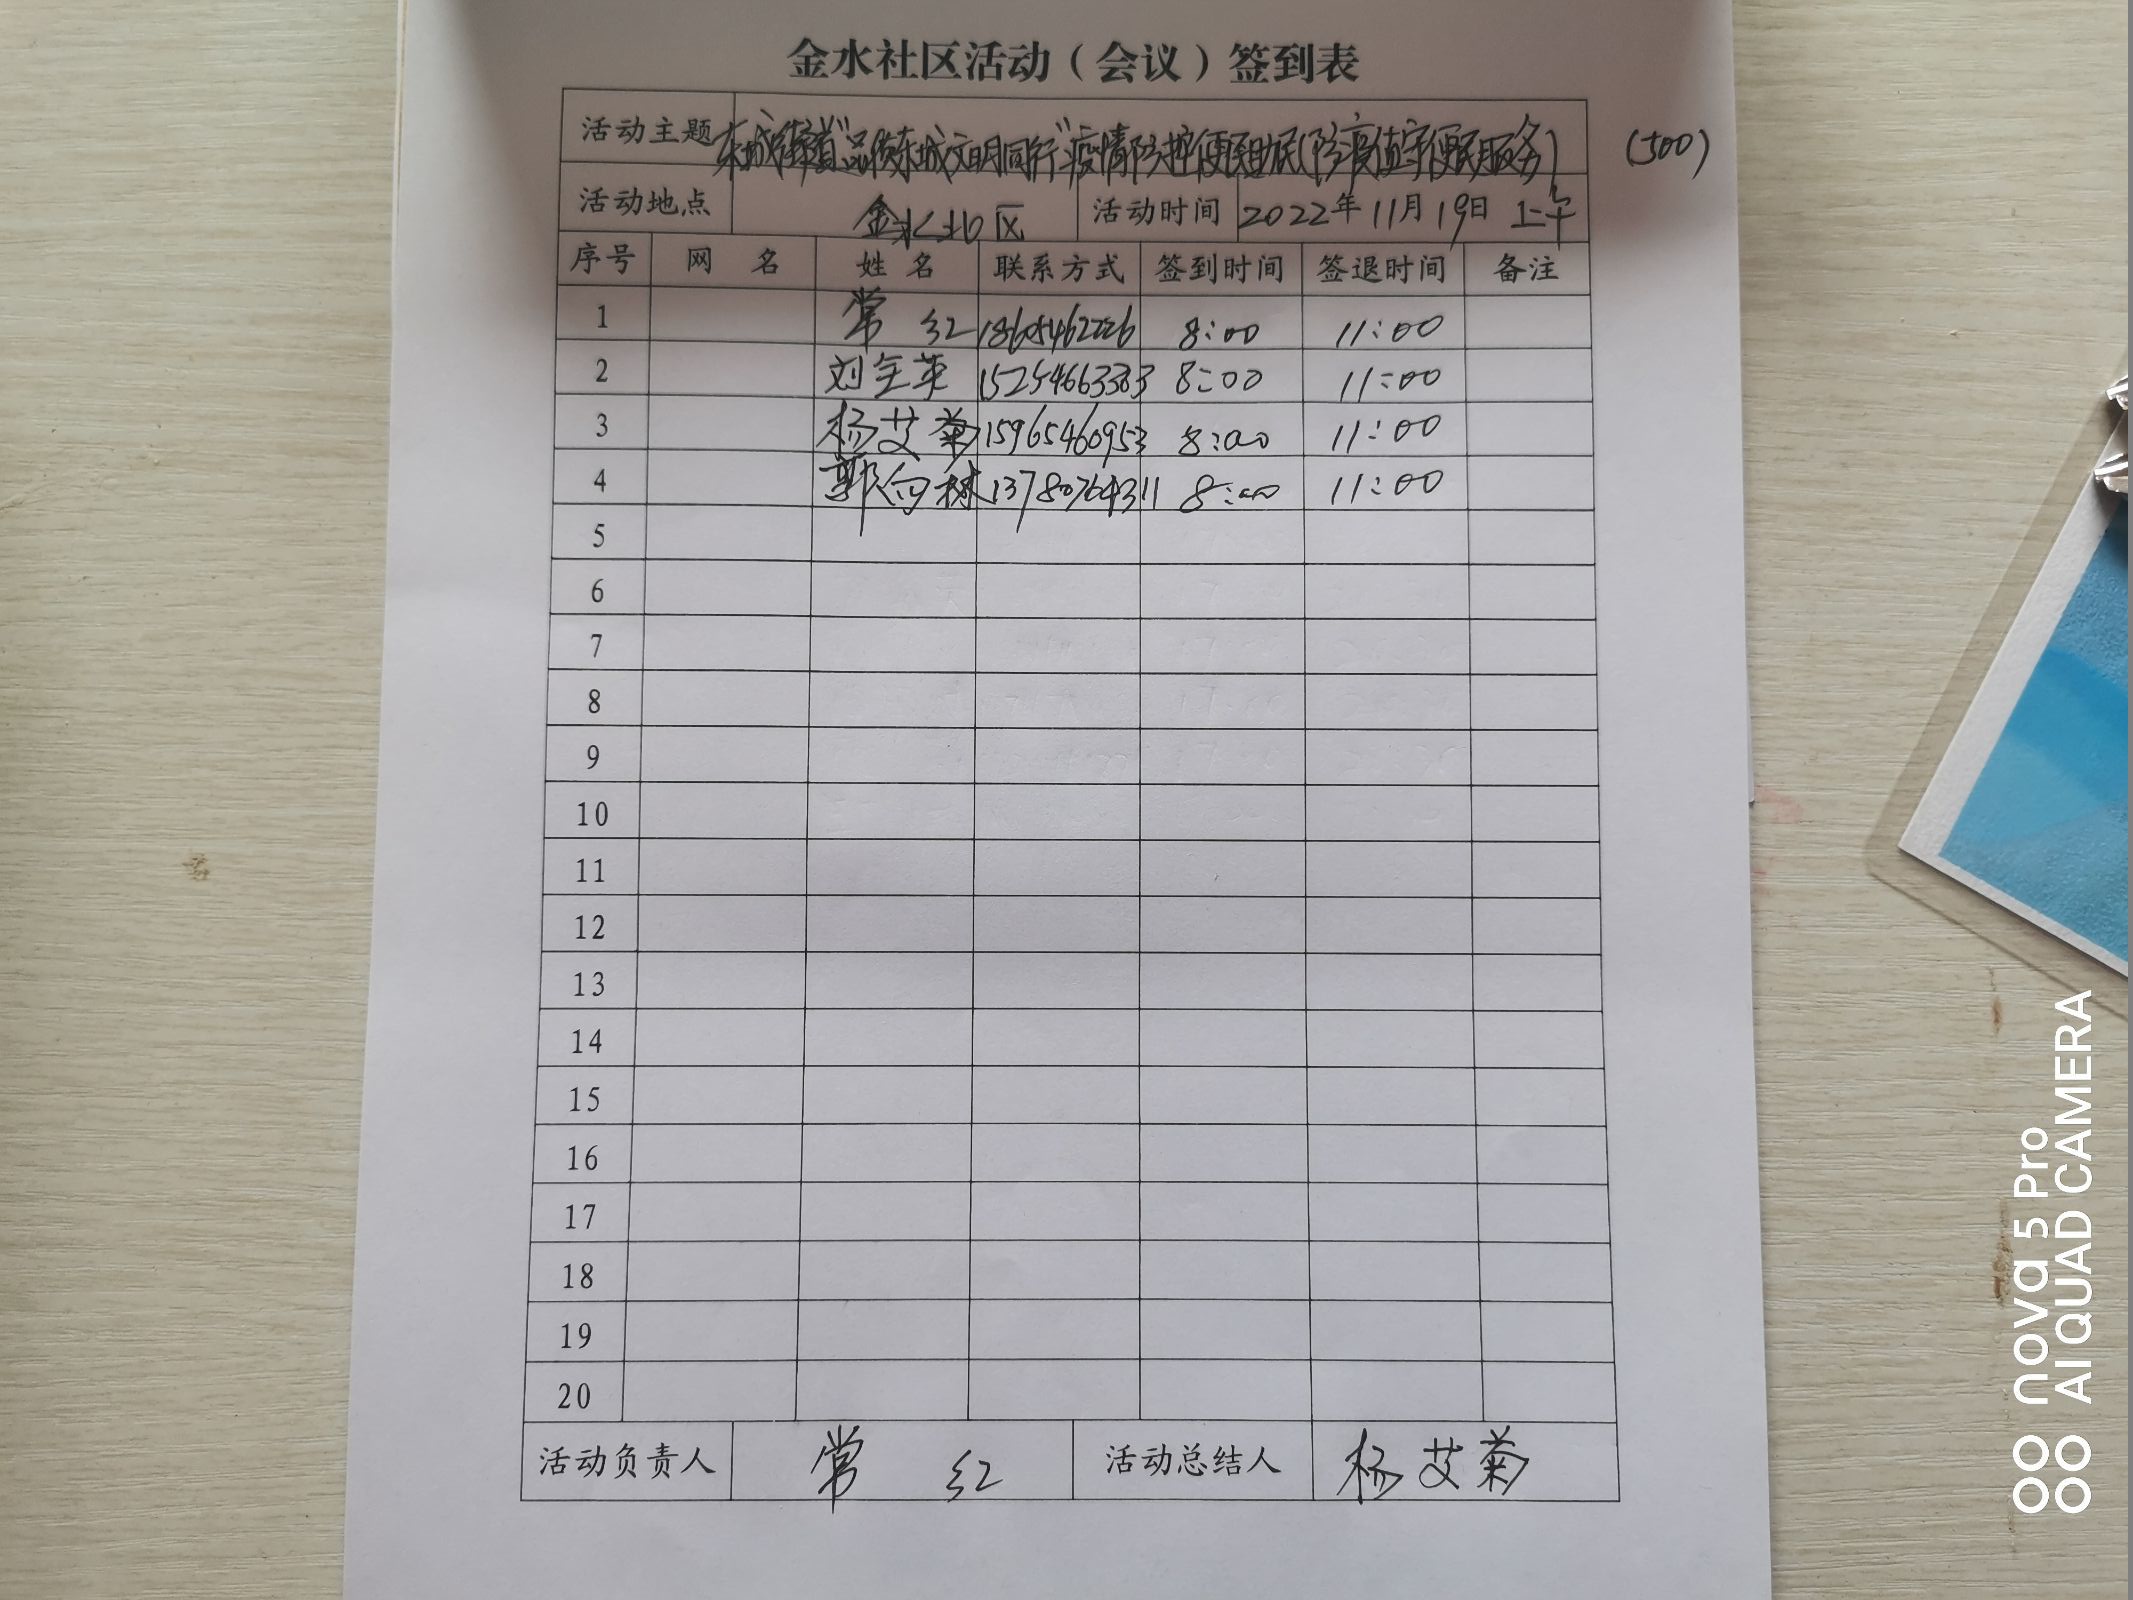 金水社区活动（会议）签到表
活动主题 东城街道"品质东城文明同行"疫情防控便民助民(防疫值守便民服务) (500)
活动地点 金水社区 活动时间 2022年11月19日 上午
序号 网 名 姓 名 联系方式 签到时间 签退时间 备注
1 常 红 18605462226 8:00 11:00
2 刘全英 15254663383 8:00 11:00
3 杨艾菊 15965460953 8:00 11:00
4 郭向林 13780764311 8:00 11:00
5
6
7
8
9
10
11
12
13
14
15
16
17
18
19
20
活动负责人 常 红 活动总结人 杨艾菊
nova 5 Pro
AI QUAD CAMERA